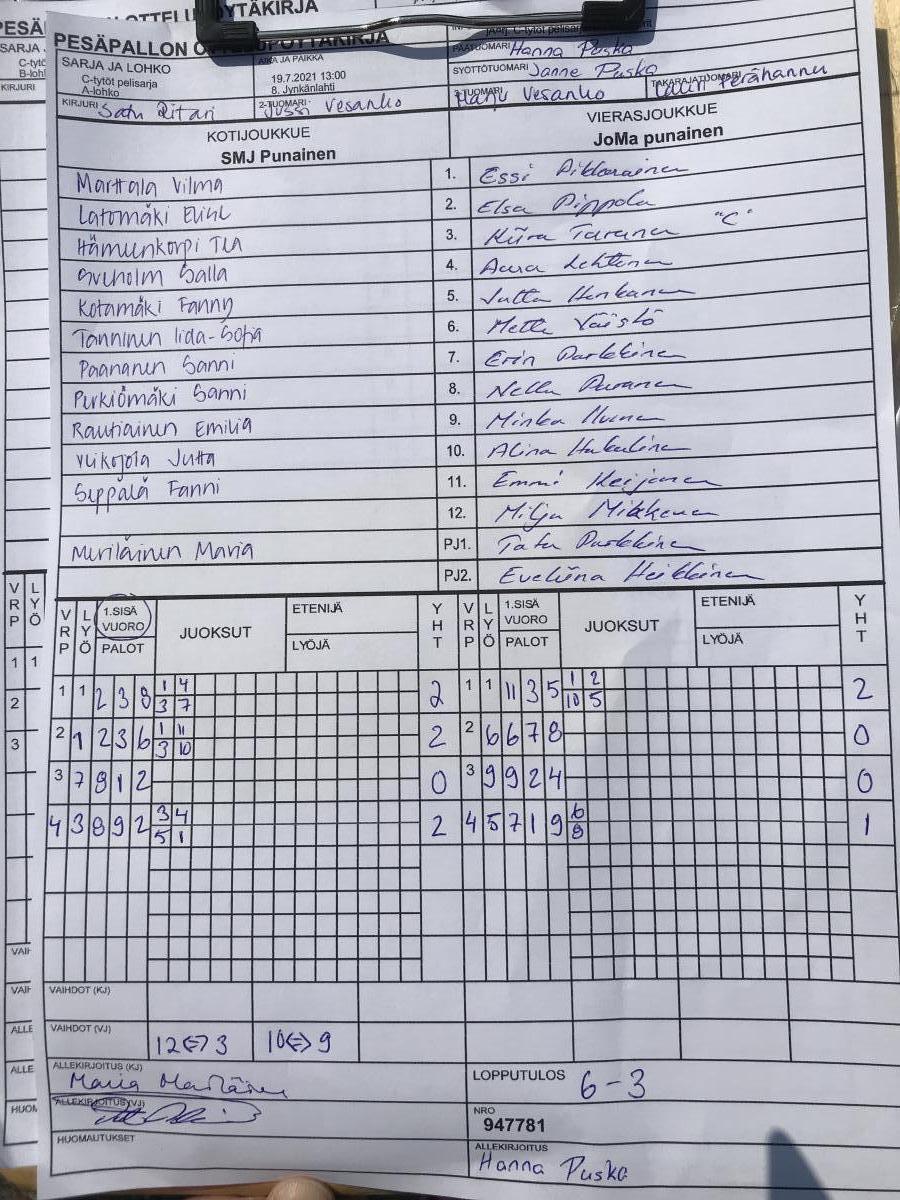 PESÄPALLON OTTELUPÖYTÄKIRJA
SARJA JA LOHKO
C-tytöt pelisarja
A-lohko
AIKA JA PAIKKA
19.7.2021 13:00
8. Jynkänlahti
PÄÄTUOMARI Hanna Puska
SYÖTTÖTUOMARI Janne Puska
KIRJURI Satu Ritari
2-TUOMARI Jussi Vesanko
3-TUOMARI Harju Vesanko
TAKARAJATUOMARI Lauri Perähannu
KOTIJOUKKUE
SMJ Punainen
VIERASJOUKKUE
JoMa punainen
Marttala Vilma 1. Essi Pikkarainen
Latomäki Elini 2. Elsa Pippola
Hämeenkorpi Tea 3. Kiira Turunen "C"
Salla 4. Aura Lehtinen
Kotamäki Fanny 5. Jutta Henkanen
Tanninen Iida-Sofia 6. Mette Väistö
Paananen Sanni 7. Erin Parkkinen
Perkiömäki Sanni 8. Nella Puranen
Rautiainen Emilia 9. Minka
Viikojola Jutta 10. Alina Hukulinen
Seppälä Fanni 11. Emmi Keijonen
12. Milja Mikkonen
Meriläinen Maria PJ1. Tatu Parkkinen
PJ2. Eveliina Heikkinen
VRP LYÖ 1.SISÄ VUORO PALOT JUOKSUT ETENIJÄ LYÖJÄ YHT VRP LYÖ 1.SISÄ VUORO PALOT JUOKSUT ETENIJÄ LYÖJÄ YHT
1 1 2 3 8 1 4 2 1 1 11 3 5 1 2 2
3 7 10 5
2 1 2 3 6 1 11 2 2 6 6 7 8 0
3 10
3 7 8 1 2 0 3 9 9 2 4 0
4 3 8 9 2 3 4 2 4 5 7 1 9 6 1
5 1 8
VAIHDOT (KJ)
VAIHDOT (VJ)
12<=>3 10<=>9
ALLEKIRJOITUS (KJ)
Maria Meriläinen
ALLEKIRJOITUS (VJ)
LOPPUTULOS 6-3
NRO
947781
HUOMAUTUKSET
ALLEKIRJOITUS
Hanna Puska